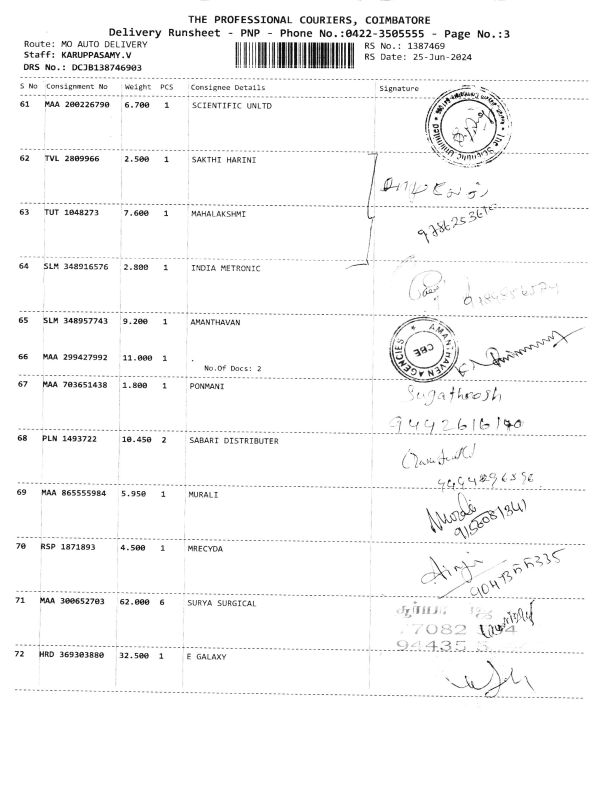 THE PROFESSIONAL COURIERS, COIMBATORE
Delivery Runsheet - PNP - Phone No.:0422-3505555 - Page No.:3
Route: MO AUTO DELIVERY RS No.: 1387469
Staff: KARUPPASAMY.V RS Date: 25-Jun-2024
DRS No.: DCJB138746903
S No Consignment No Weight PCS Consignee Details Signature
61 MAA 200226790 6.700 1 SCIENTIFIC UNLTD
The Scientific Unlimited
62 TVL 2809966 2.500 1 SAKTHI HARINI
63 TUT 1048273 7.600 1 MAHALAKSHMI
64 SLM 348916576 2.800 1 INDIA METRONIC
65 SLM 348957743 9.200 1 AMANTHAVAN
AMANTHAVEN AGENCIES
CBE
66 MAA 299427992 11.000 1 .
No.Of Docs: 2
67 MAA 703651438 1.800 1 PONMANI
Sugathrosh
68 PLN 1493722 10.450 2 SABARI DISTRIBUTER
69 MAA 865555984 5.950 1 MURALI
Murali
70 RSP 1871893 4.500 1 MRECYDA
71 MAA 300652703 62.000 6 SURYA SURGICAL
77082
94435
72 HRD 369303880 32.500 1 E GALAXY